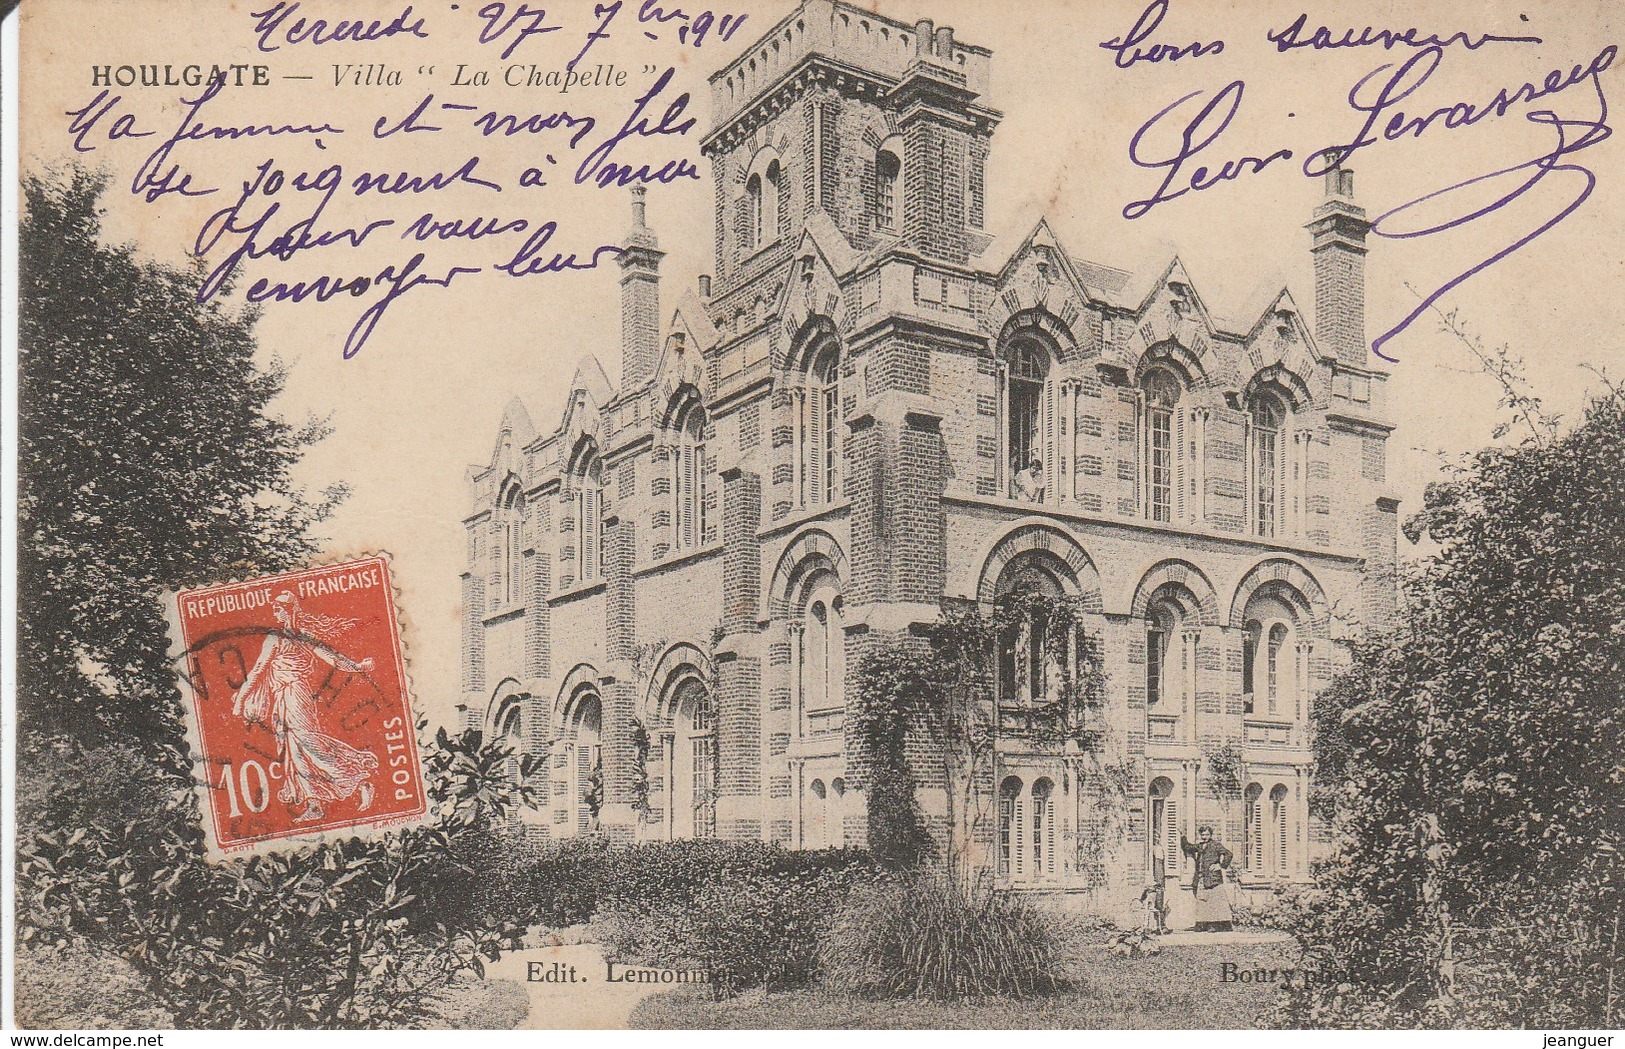 Mercredi 27 7bre 1911
HOULGATE — Villa “ La Chapelle ”
Ma femme et mon fils
se joignent à moi
pour vous
envoyer leur
bons souvenir
Léon Levasseur
REPUBLIQUE FRANÇAISE
10c
POSTES
O. ROTY
E. MOUCHON
CA
Edit. Lemonnier, tabac
Boury phot.
delcampe.net
jeanguer